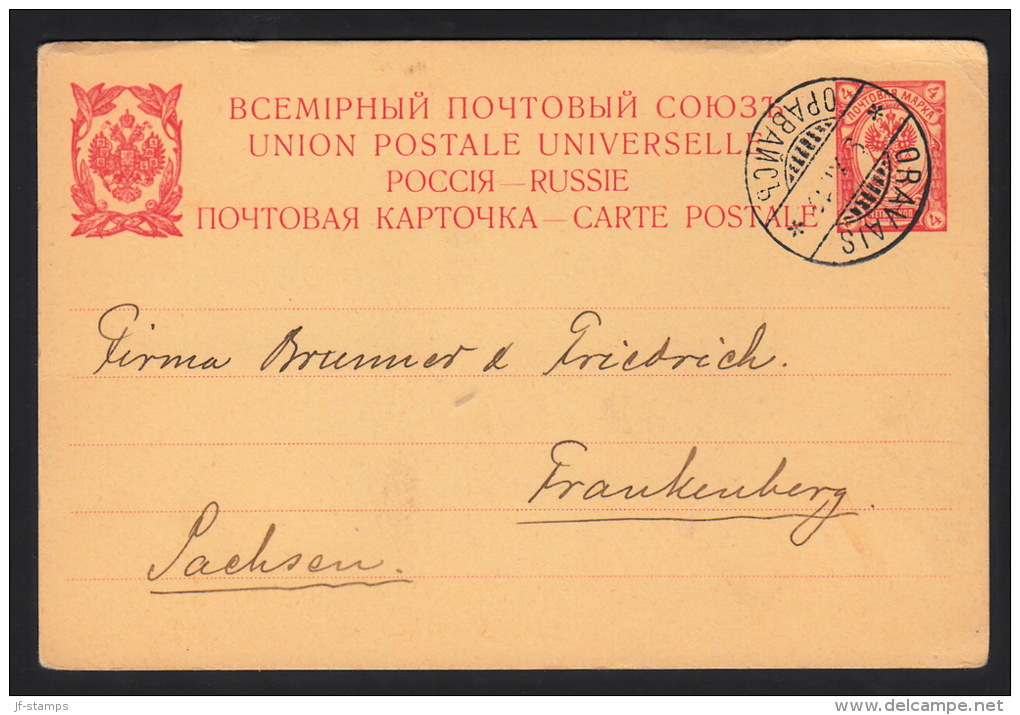 ВСЕМІРНЫЙ ПОЧТОВЫЙ СОЮЗЪ
UNION POSTALE UNIVERSELLE
РОССІЯ—RUSSIE
ПОЧТОВАЯ КАРТОЧКА—CARTE POSTALE
4 4
ПОЧТОВАЯ МАРКА
4
ОРАВАЙСЪ
ORAVAIS
Firma Brunner & Friedrich.
Frankenberg.
Sachsen.
jf-stamps
delcampe.net